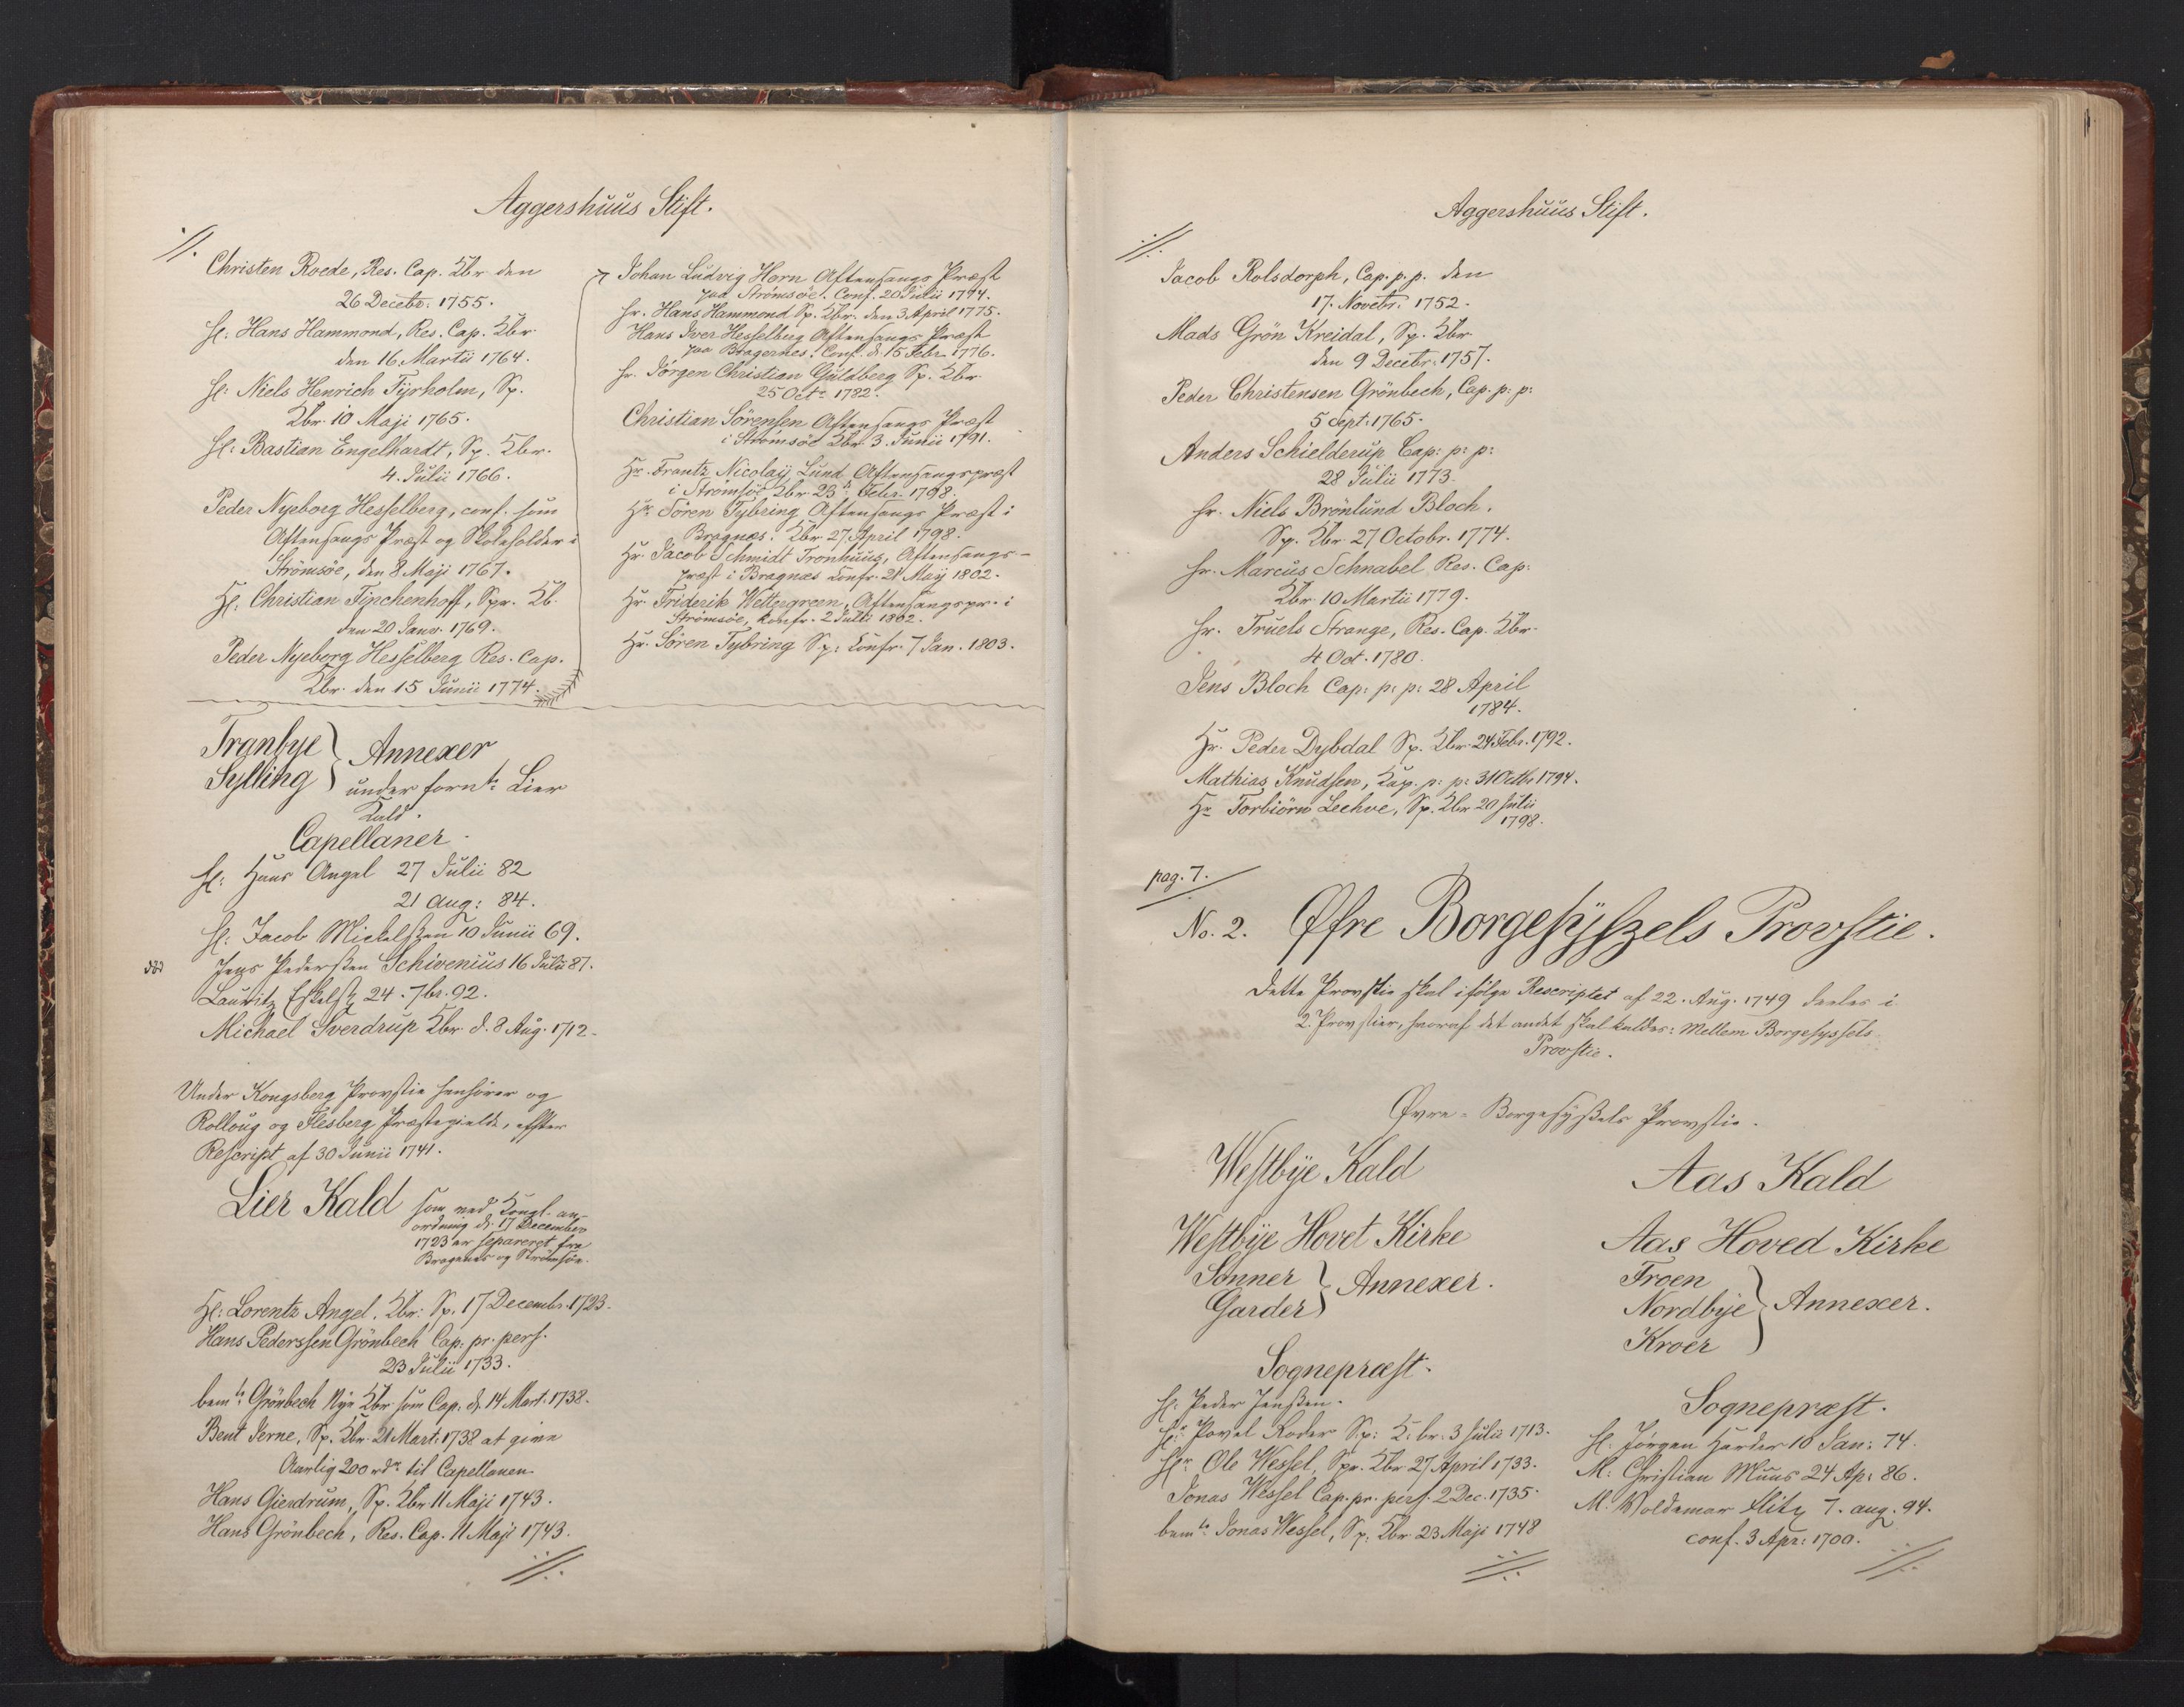 Aggershuus Stift.
·//.
Christen Roede, Res. Cap. Kbr den
26 Decebr: 1755.
Hl: Hans Hammond, Res. Cap. Kbr.
den 16. Martii 1764.
Hl: Niels Henrich Tyrholm, Sp.
Kbr. 10 Maji 1765.
Hl: Bastian Engelhardt, Sp. Kbr.
4. Julii 1766.
Peder Nyeborg Hesselberg, conf. som
Aftensangs Præst og Skoleholder i
Strömsöe, den 8 Maji 1767.
Hl: Christian Finchenhoff, Spr. Kb.
den 20 Janv. 1769.
Peder Nyeborg Hesselberg Res. Cap.
Kbr. den 15 Junii 1774.
Johan Ludvig Horn Aftensangs Præst
paa Strömsöe. Conf. 20 Julii 1774.
Hr. Hans Hammond Sp. Kbr. den 3 April 1775.
Hans Iver Hesselberg Aftensangs Præst
paa Bragernes. Conf. d. 15 Febr. 1776.
Hr. Jörgen Christian Guldberg Sp. Kbr.
25 Octr. 1782.
Christian Sörensen Aftensangs Præst
i Strömsöe Kbr. 3. Junii 1791.
Hr. Frantz Nicolaij Lund Aftensangspræst
i Strömsöe Kbr. 23 Febr. 1798.
Hr. Sören Tybring Aftensangs Præst i
Bragnæs. Kbr 27 April 1798.
Hr. Jacob Schmidt Tronhuus, Aftensangs-
præst i Bragnæs Konfr. 21 Maij 1802.
Hr. Friderik Wettergreen, Aftensangspr. i
Strömsöe, Konfr. 2 Julii 1802.
Hr. Sören Tybring Sp: Konfr. 7 Jan. 1803.
Tranbye } Annexer
Sylling } under fornte. Lier
Kald.
Capellaner.
Hl: Hans Angel 27 Julii 82
21 Aug: 84.
Hl: Jacob Mickelssen 10 Junii 69.
Jens Pederssen Schivenius 16 Julii 87.
Lauritz 24. 7br. 92.
Michael Sverdrup Kbr d. 8 Aug. 1712.
Under Kongsberg Provstie henhörer og
Rolloug og Flesberg Præstegield, efter
Rescript af 30 Junii 1741.
Lier Kald som ved Kongl. an-
ordning d. 17 December
1723 er separeret fra
Bragenes og Strömsöe.
Hl: Lorentz Angel. Kbr: Sp. 17 Decembr. 1723.
Hans Pederssen Grönbech Cap. pr. pers.
23 Julii 1733.
bemte Grönbech Nye Kbr som Cap. d. 14 Mart. 1738.
Bent Jerne, Sp. Kbr. 21 Mart: 1738 at give
Aarlig 200 rdr. til Capellanen.
Hans Gierdrum, Sp. Kbr 11 Maji 1743.
Hans Grönbech, Res. Cap. 11 Maji 1743.
·//·
Aggershuus Stift.
·//·
Jacob Rolsdorph, Cap. p. p. den
17. Novebr: 1752.
Mads Grön Kreidal, Sp. Kbr
den 9 Decebr: 1757.
Peder Christensen Grönbech, Cap. p: p:
5 Sept: 1765.
Anders Schielderup Cap: p: p:
28 Julii 1773.
Hr. Niels Brönlund Bloch.
Sp. Kbr. 27 Octobr. 1774.
Hr. Marcus Schnabel Res. Cap:
Kbr 10 Martii 1779.
Hr. Truels Strange, Res. Cap. Kbr.
4 Oct. 1780.
Jens Bloch Cap: p: p: 28 April
1784.
Hr. Peder Dybdal Sp. Kbr. 24 Febr. 1792.
Mathias Knudsen, Kap. p: p: 31 Octbr 1794.
Hr Torbiörn Leehve, Sp. Kbr 20 Julii
1798.
pag. 7.
No. 2. Øfre Borgesyszels Provstie.
Dette Provstie skal ifölge Rescriptet af 22. Aug. 1749 deeles i
2. Provstier, hvoraf det andet skal kaldes: Mellem Borgesyssels
Provstie.
Øvre-Borgesyssels Provstie.
Westbÿe Kald
Westbÿe Hovet Kirke
Sonner } Annexer.
Garder }
Sognepræst.
Hl: Peder Jenssen.
Hl: Povel Roder Sp: K: br: 3 Julii 1713.
Hr Ole Wessel, Spr. Kbr 27 April 1733.
Jonas Wessel Cap. pr. pers. 2 Dec. 1735.
bemte Jonas Wessel, Sp: Kbr 23 Maji 1748
·//·
Aas Kald
Aas Hoved Kirke
Froen
Nordbÿe } Annexer.
Kroer
Sognepræst.
Hl: Jörgen Harder 10 Jan: 74.
M: Christian Muus 24 Ap: 86.
M. Woldemar 7. aug. 94.
conf. 3 Apr: 1700.
·//·